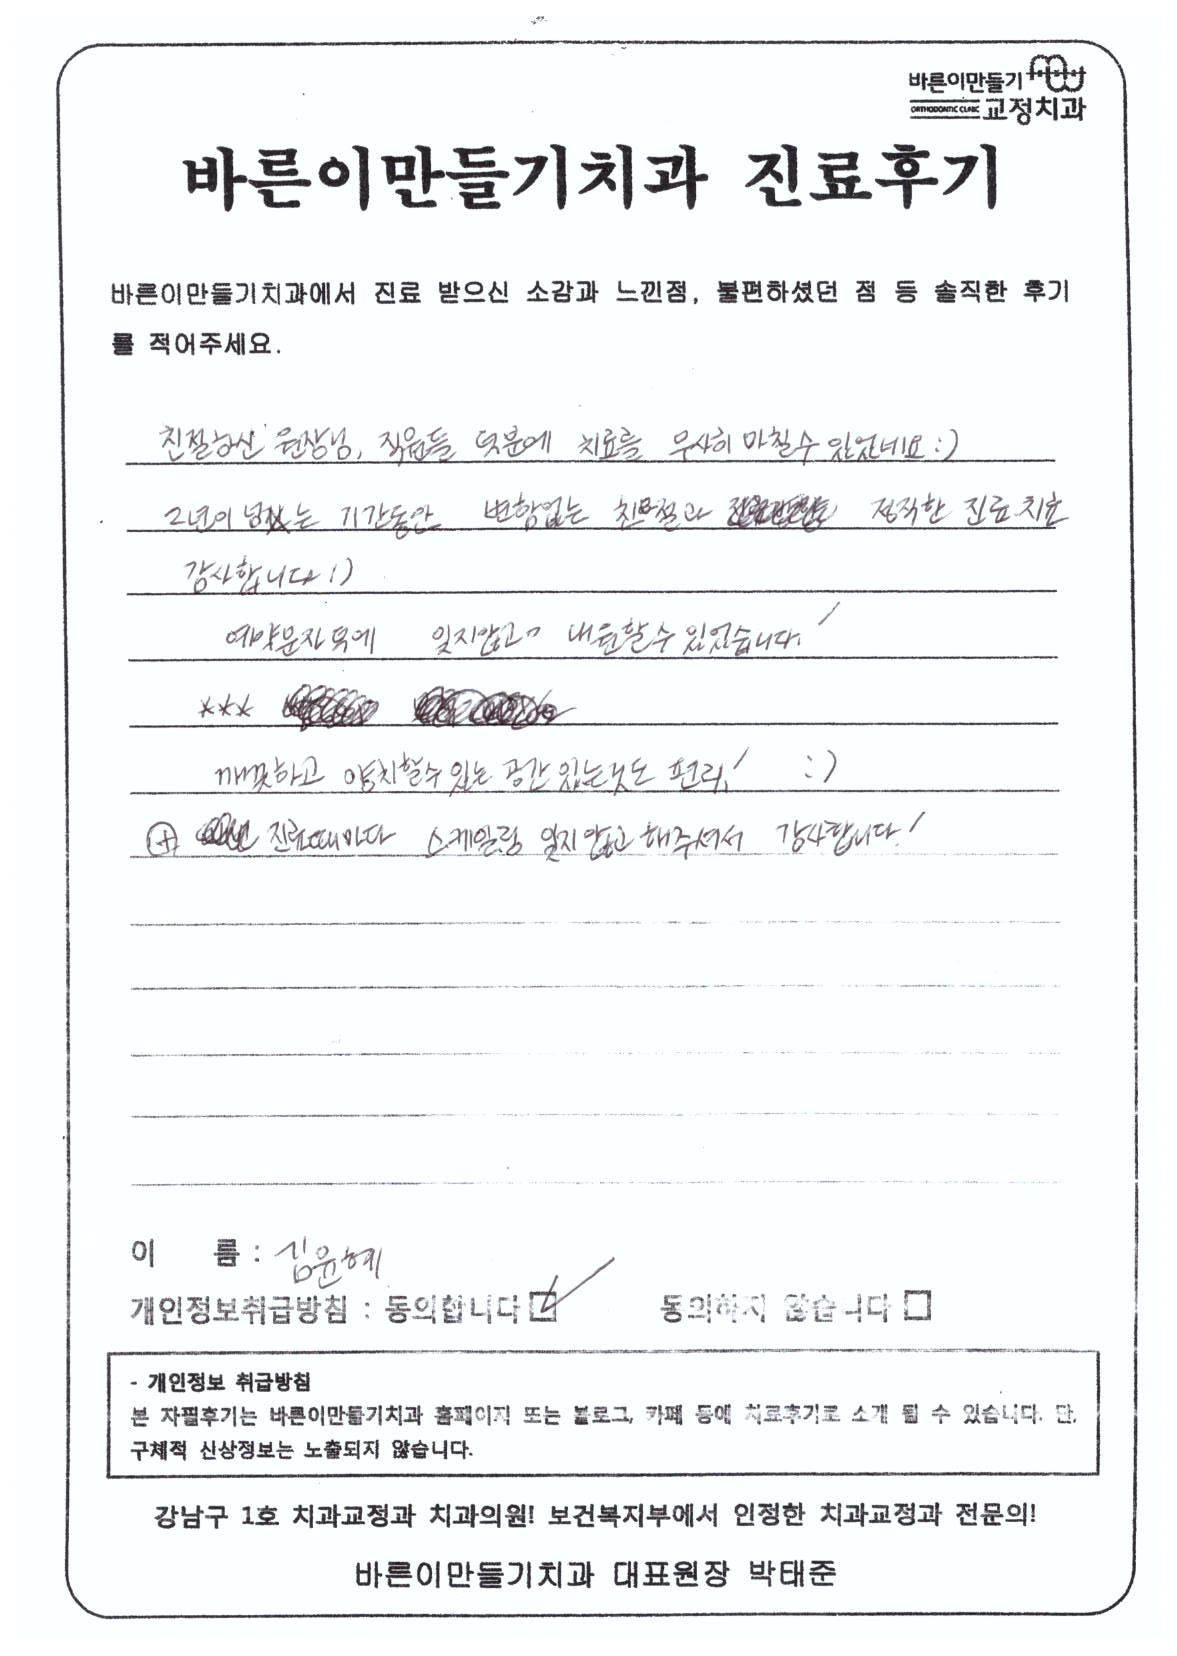 바른이만들기
ORTHODONTIC CLINIC 교정치과
바른이만들기치과 진료후기
바른이만들기치과에서 진료 받으신 소감과 느낀점, 불편하셨던 점 등 솔직한 후기
를 적어주세요.
친절하신 원장님, 직원들 덕분에 치료를 무사히 마칠수 있었네요 :)
2년이 넘는 기간동안 변함없는 친절과 정직한 진료 치료
감사합니다 :)
예약문자 덕에 잊지않고 내원할수 있었습니다!
***
깨끗하고 양치할수 있는 공간 있는것도 편리! :)
⊕ 진료때마다 스케일링 잊지 않고 해주셔서 감사합니다!
이 름 : 김윤혜
개인정보취급방침 : 동의합니다 ☑ 동의하지 않습니다 □
- 개인정보 취급방침
본 자필후기는 바른이만들기치과 홈페이지 또는 블로그, 카페 등에 치료후기로 소개 될 수 있습니다. 단,
구체적 신상정보는 노출되지 않습니다.
강남구 1호 치과교정과 치과의원! 보건복지부에서 인정한 치과교정과 전문의!
바른이만들기치과 대표원장 박태준